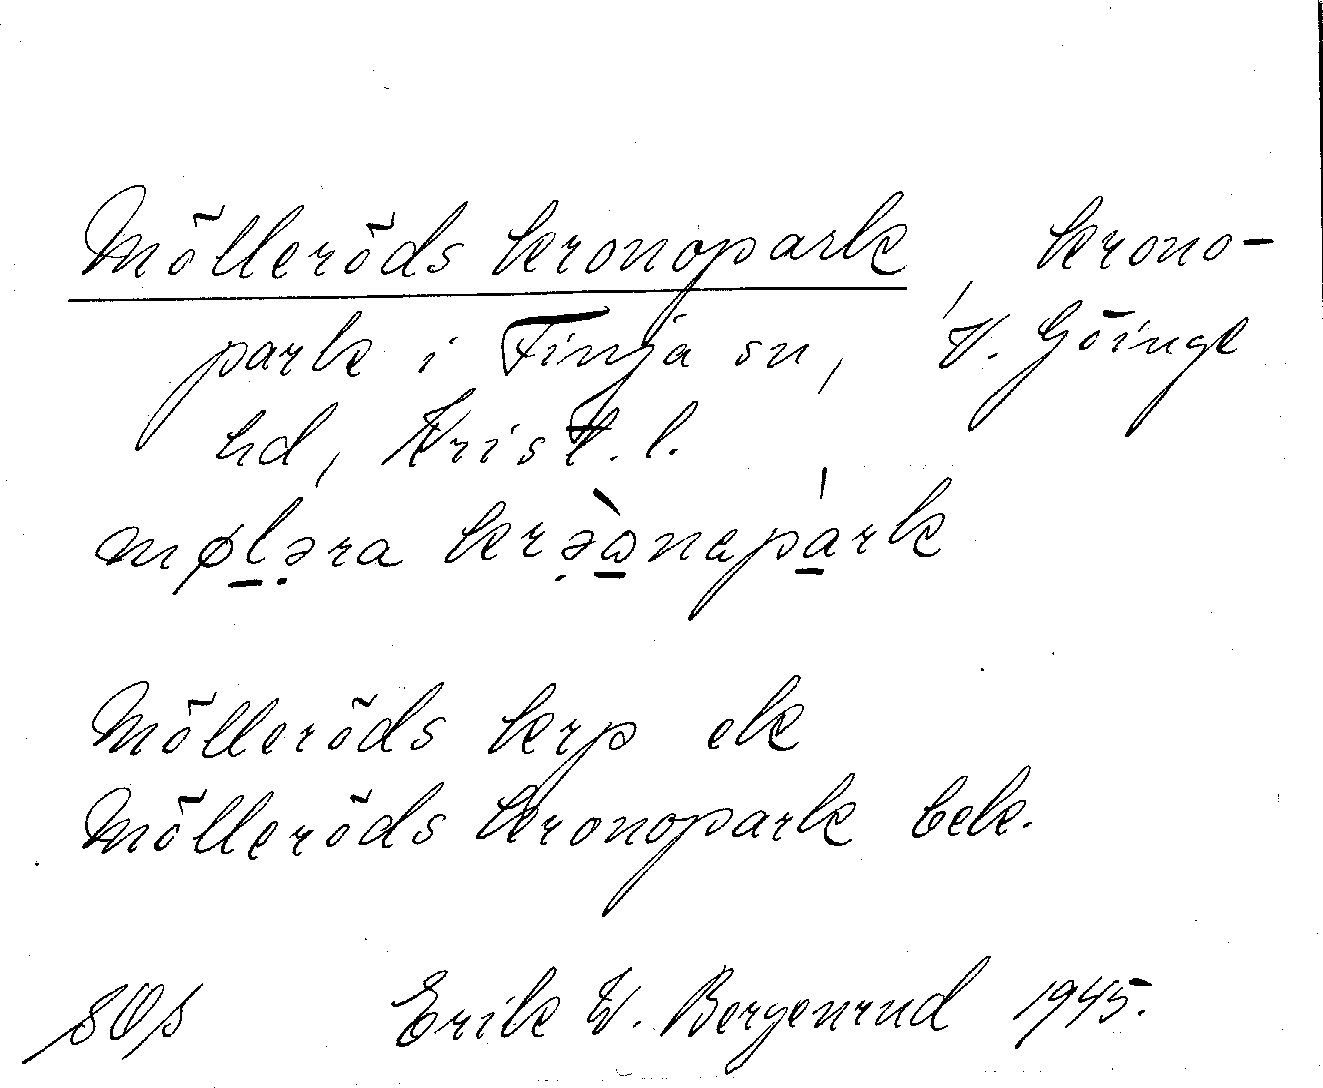 Mölleröds kronopark, krono-
park i Finja sn, V. Göinge
hd, Krist. l.
møl̲ə̣ra krə̣ɷ̲̀napa̲̍rk
Mölleröds krp ek
Mölleröds kronopark bek.
SOS Erik W. Bergenrud 1945.